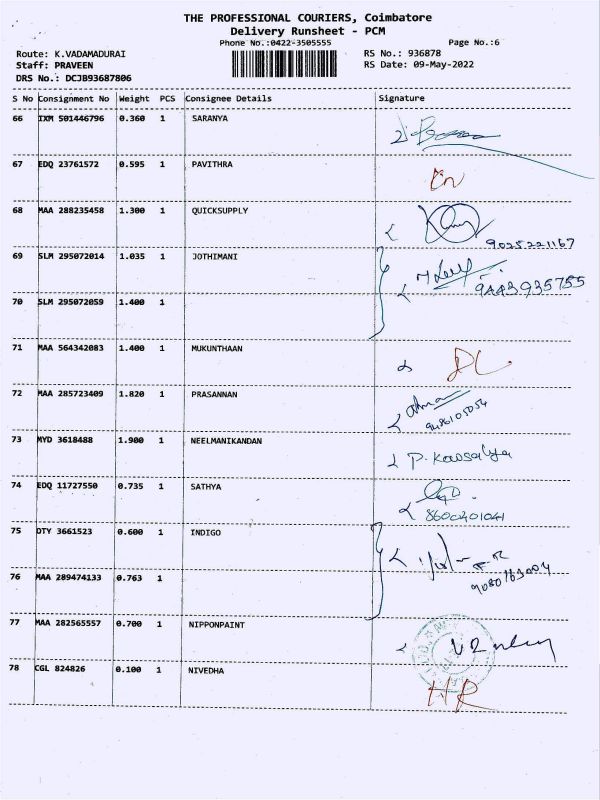 THE PROFESSIONAL COURIERS, Coimbatore
Delivery Runsheet - PCM
Phone No.:0422-3505555
Page No.:6
Route: K.VADAMADURAI
RS No.: 936878
Staff: PRAVEEN
RS Date: 09-May-2022
DRS No.: DCJB93687806
S No Consignment No Weight PCS Consignee Details Signature
66 IXM 501446796 0.360 1 SARANYA
67 EDQ 23761572 0.595 1 PAVITHRA
68 MAA 288235458 1.300 1 QUICKSUPPLY
9025221167
69 SLM 295072014 1.035 1 JOTHIMANI
9443935755
70 SLM 295072059 1.400 1
71 MAA 564342083 1.400 1 MUKUNTHAAN
72 MAA 285723409 1.820 1 PRASANNAN
9486105054
73 MYD 3618488 1.900 1 NEELMANIKANDAN
P. Kowsalya
74 EDQ 11727550 0.735 1 SATHYA
8600401041
75 OTY 3661523 0.600 1 INDIGO
76 MAA 289474133 0.763 1
9080763004
77 MAA 282565557 0.700 1 NIPPONPAINT
78 CGL 824826 0.100 1 NIVEDHA